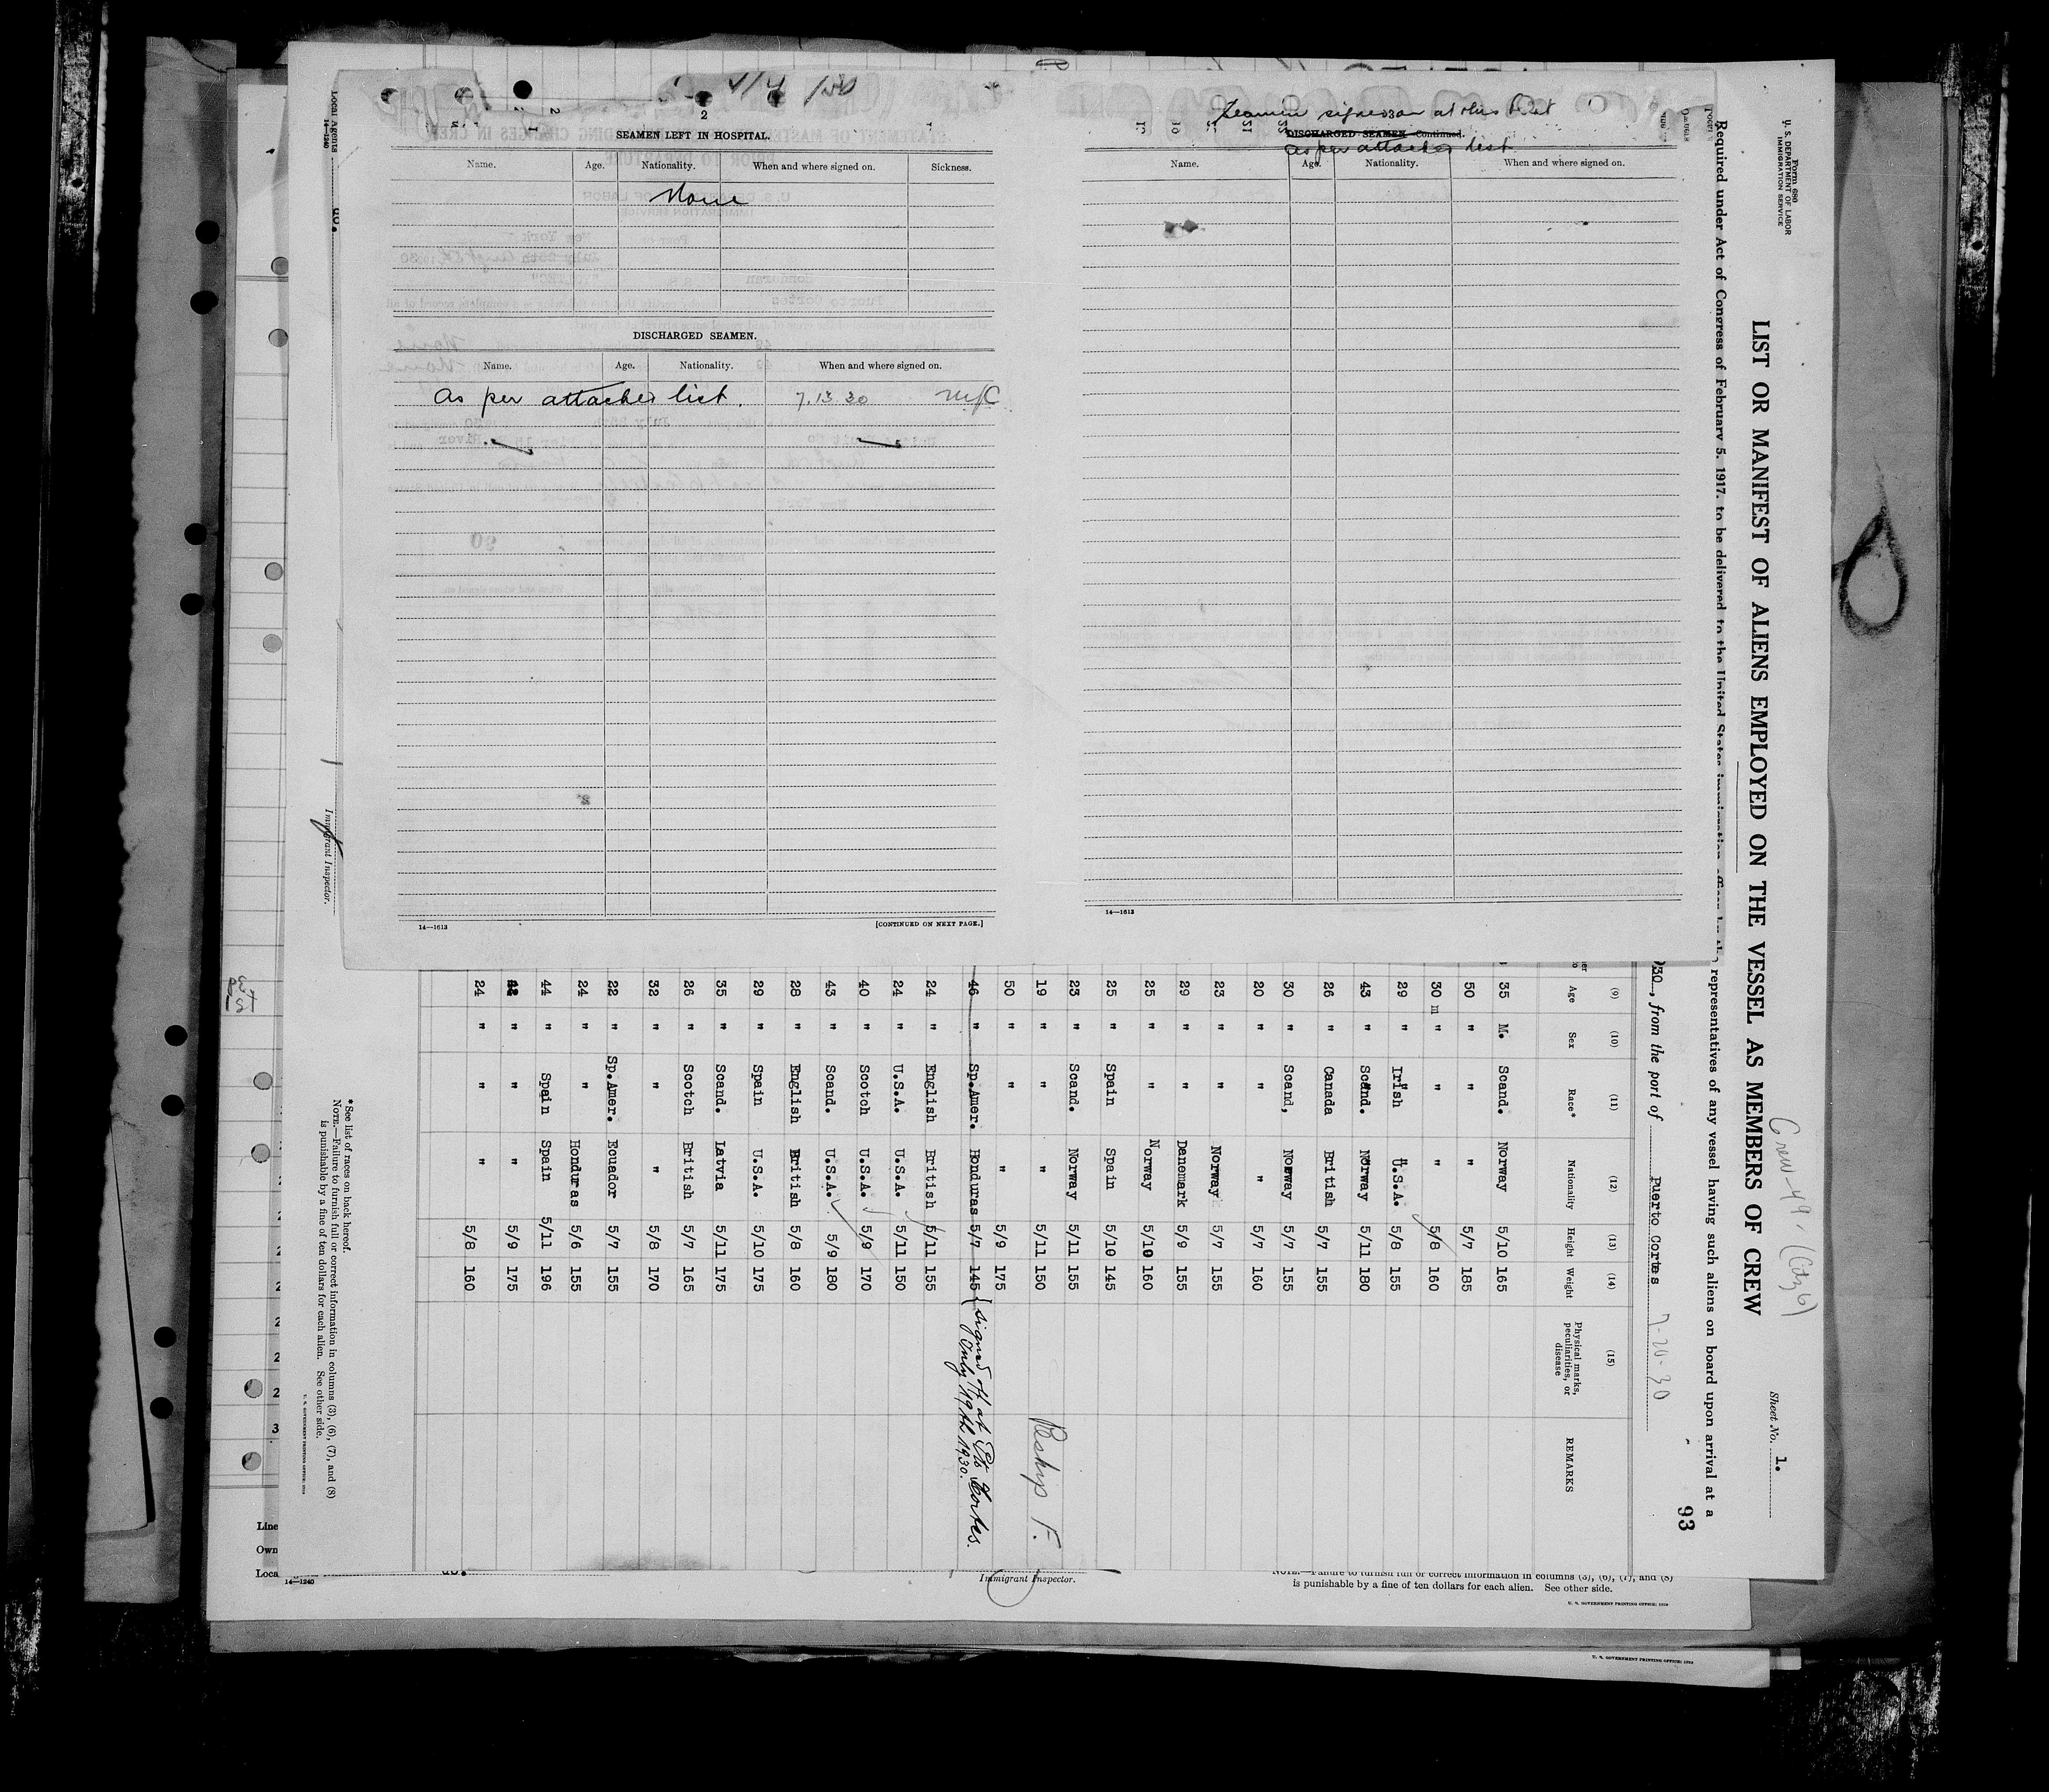 2
SEAMEN LEFT IN HOSPITAL.
Name. Age. Nationality. When and where signed on. Sickness.
None
DISCHARGED SEAMEN.
Name. Age. Nationality. When and where signed on.
as per attached list. 7.13 30
14—1613 [CONTINUED ON NEXT PAGE.]
Seamen signed on at this Port
DISCHARGED SEAMEN—Continued.
as per attached list
Name. Age. Nationality. When and where signed on.
14—1613
Form 680
U. S. DEPARTMENT OF LABOR
IMMIGRATION SERVICE
Sheet No. 1.
LIST OR MANIFEST OF ALIENS EMPLOYED ON THE VESSEL AS MEMBERS OF CREW
Crew-49.
93
Required under Act of Congress of February 5, 1917, to be delivered to the United States immigration officer by the representatives of any vessel having such aliens on board upon arrival at a
30, from the port of Puerto Cortes 7-20-30
(9) (10) (11) (12) (13) (14) (15)
Age Sex Race* Nationality Height Weight Physical marks, peculiarities, or disease REMARKS
35 M. Scand. Norway 5/10 165
50 " " " 5/7 185
30 m " " " 5/8 160
29 " Irish U.S.A. 5/8 155
43 " Scand. Norway 5/11 180
26 " Canada British 5/7 155
30 " Scand, Norway 5/7 155
20 " " " 5/7 160
23 " " Norway 5/7 155
29 " " Danemark 5/9 155
25 " " Norway 5/10 160
25 " Spain Spain 5/10 145
23 " Scand. Norway 5/11 155
19 " " " 5/11 150 Reship F.
50 " " " 5/9 175
46 " Sp.Amer. Honduras 5/7 145 { signed off at Pto Cortes.
July 19th 1930.
24 " English British 5/11 155
24 " U.S.A. U.S.A. 5/11 150
40 " Scotch U.S.A. 5/9 170
43 " Scand. U.S.A. 5/9 180
28 " English British 5/8 160
29 " Spain U.S.A. 5/10 175
35 " Scand. Latvia 5/11 175
26 " Scotch British 5/7 165
32 " " " 5/8 170
22 " Sp.Amer. Ecuador 5/7 155
24 " " Honduras 5/6 155
44 " Spain Spain 5/11 196
" " " 5/9 175
24 " " " 5/8 160
*See list of races on back hereof.
NOTE.—Failure to furnish full or correct information in columns (3), (6), (7), and (8)
is punishable by a fine of ten dollars for each alien. See other side.
U. S. GOVERNMENT PRINTING OFFICE: 1929
Local Agents
14—1240
do.
Immigrant Inspector.
Line
Own
Loca
14—1240
do.
Immigrant Inspector.
NOTE.—Failure to furnish full or correct information in columns (3), (6), (7), and (8)
is punishable by a fine of ten dollars for each alien. See other side.
U. S. GOVERNMENT PRINTING OFFICE: 1929
U. S. GOVERNMENT PRINTING OFFICE: 1929